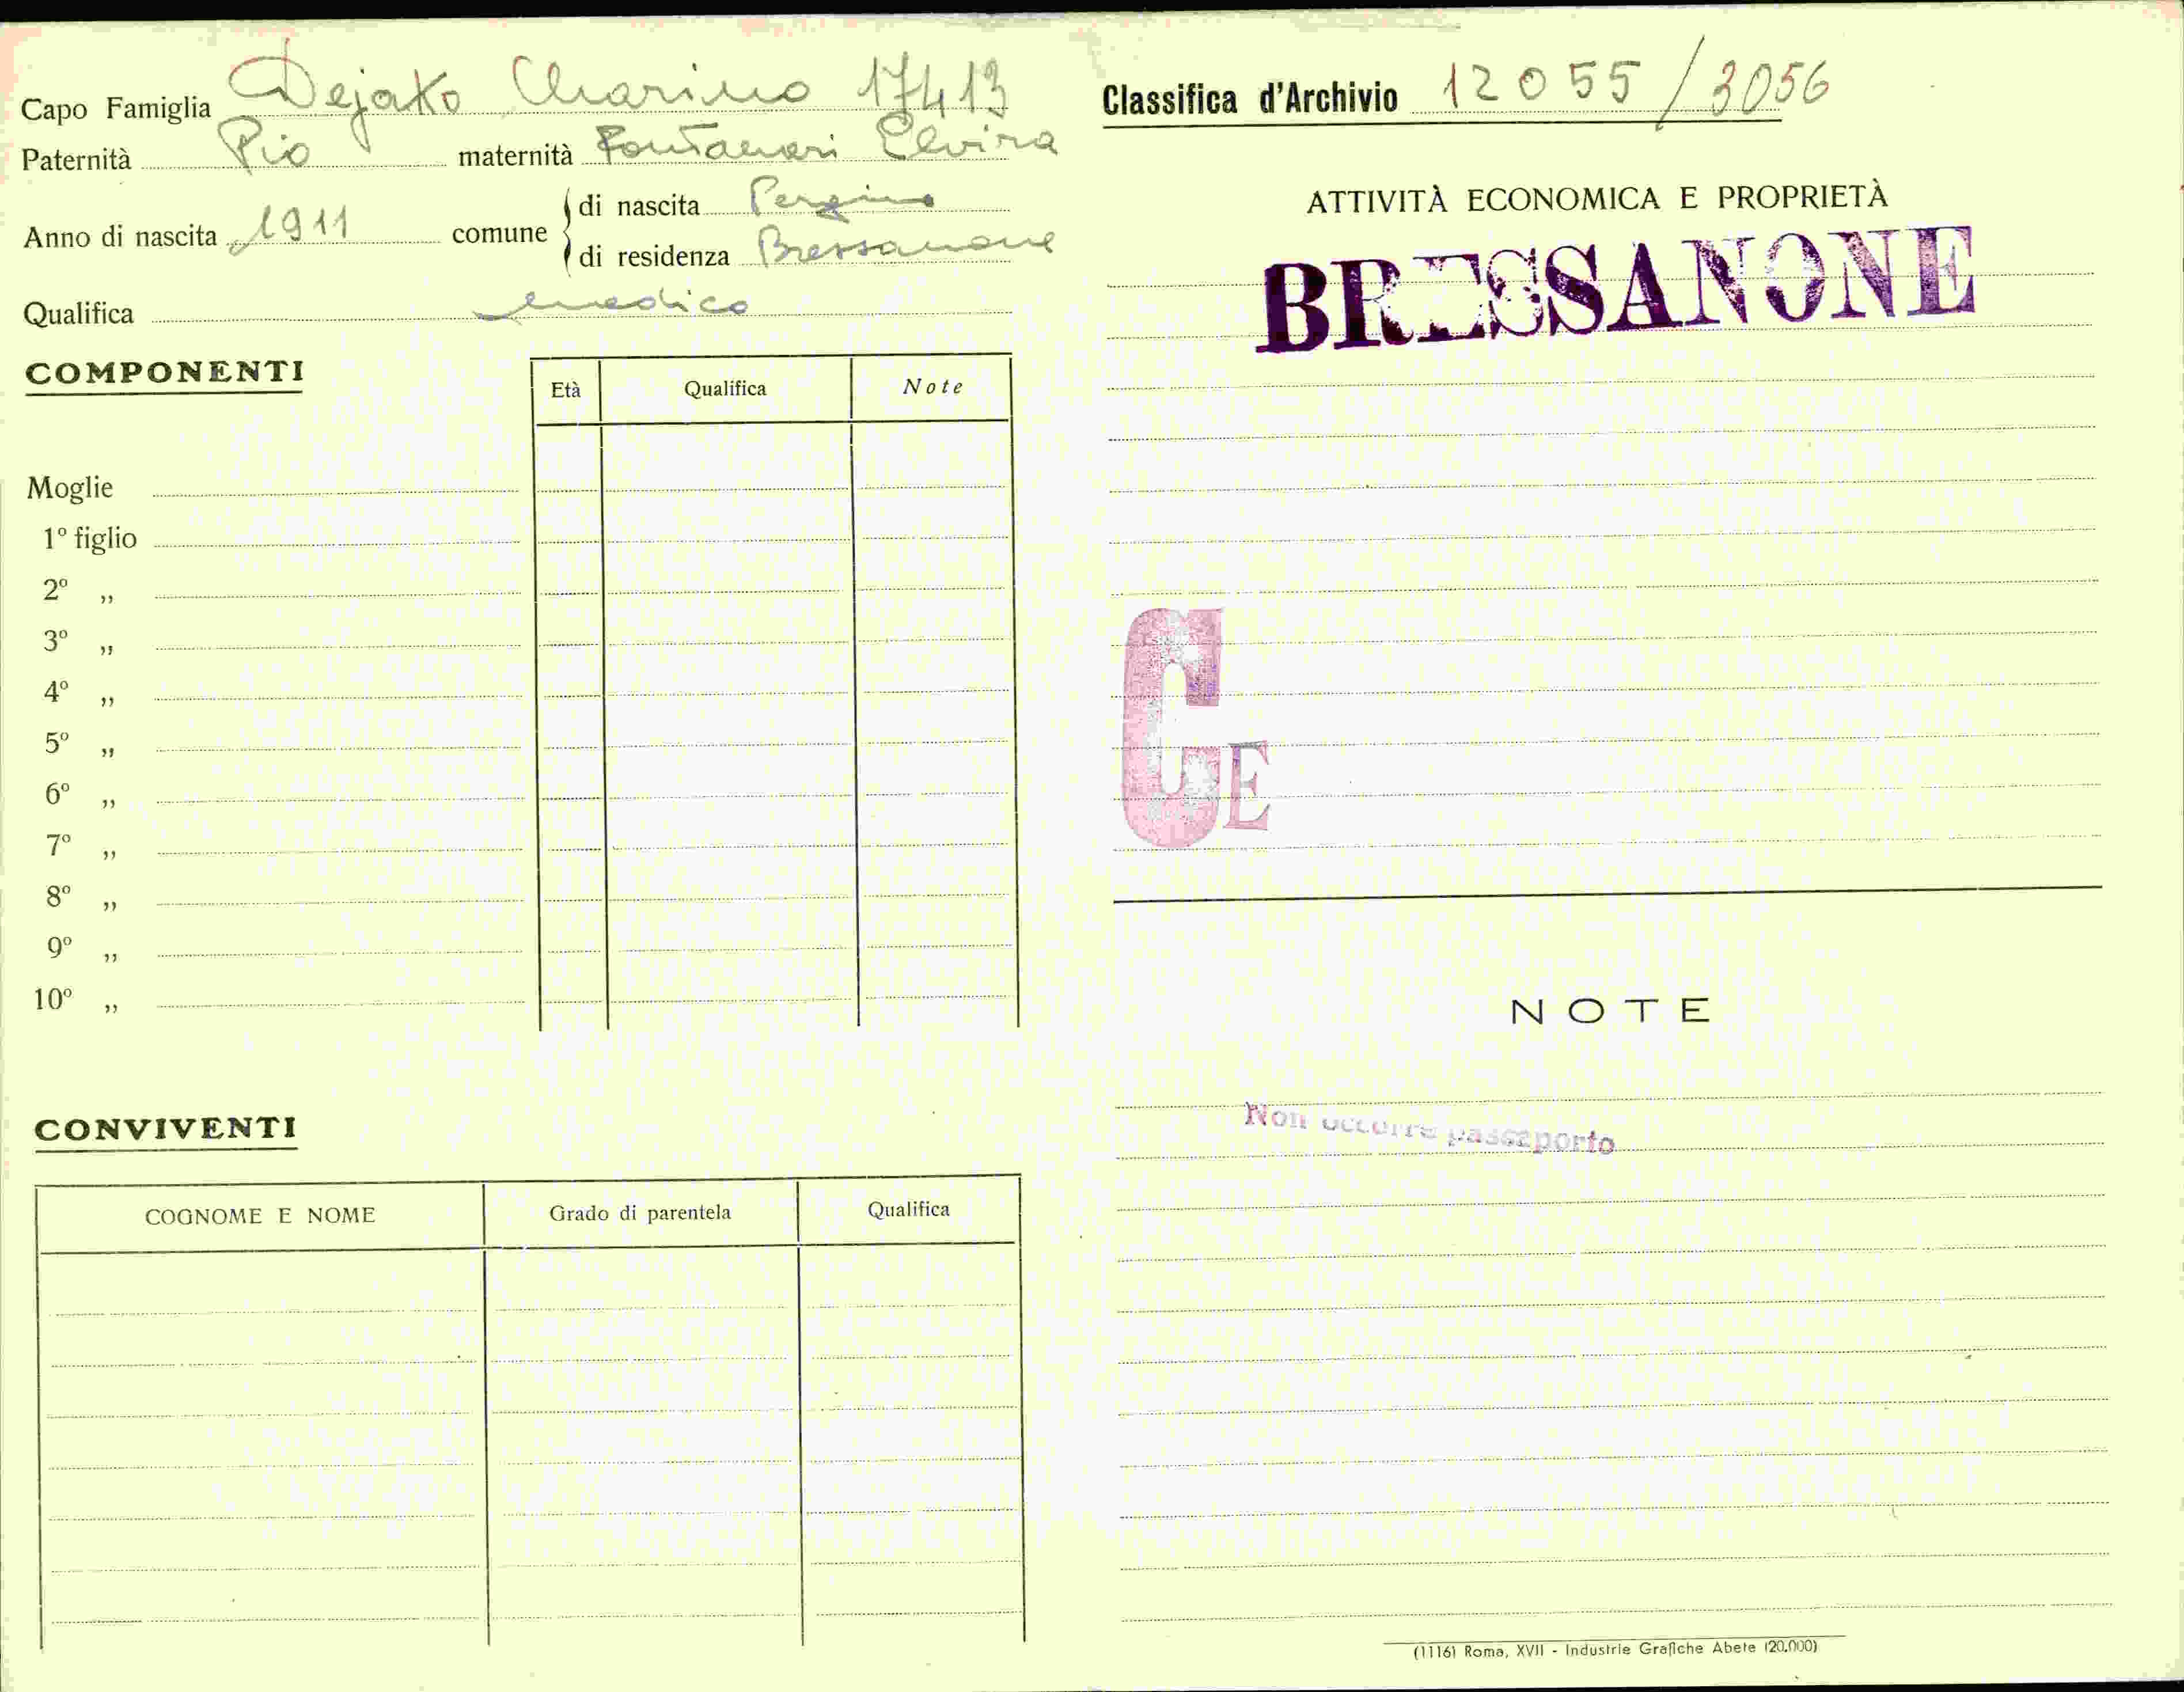 Capo Famiglia Dejako Marino 17413
Paternità Pio maternità Fontanari Elvira
Anno di nascita 1911 comune di nascita Pergine
di residenza Bressanone
Qualifica medico
COMPONENTI
Età Qualifica Note
Moglie
1º figlio
2º „
3º „
4º „
5º „
6º „
7º „
8º „
9º „
10º „
CONVIVENTI
COGNOME E NOME Grado di parentela Qualifica
Classifica d'Archivio 12055/3056
ATTIVITÀ ECONOMICA E PROPRIETÀ
BRESSANONE
CE
NOTE
Non occorre passaporto
(1116) Roma, XVII - Industrie Grafiche Abete (20.000)